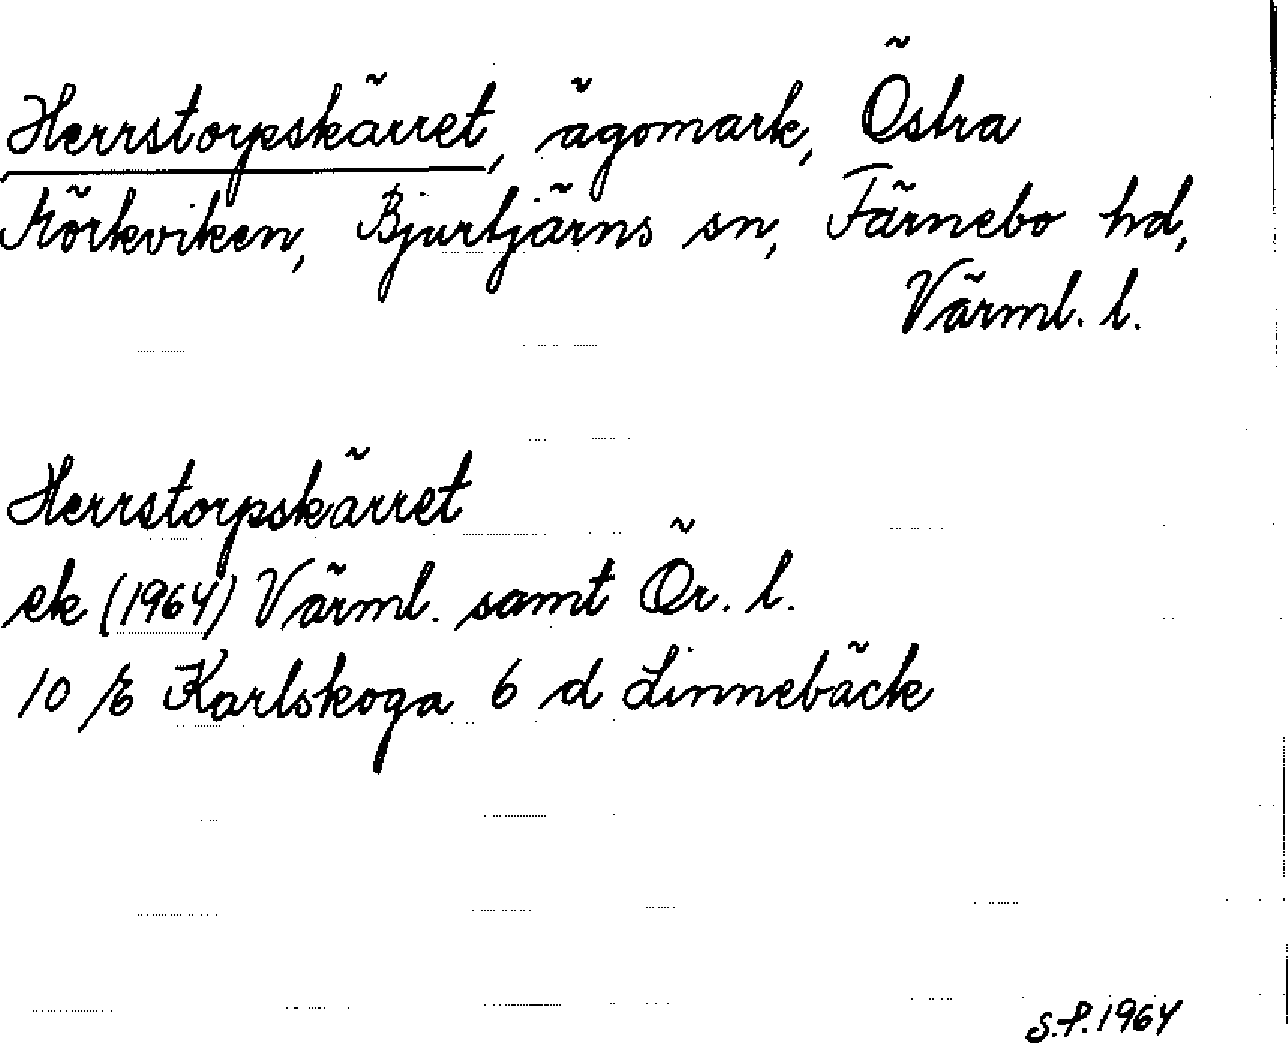 Herrstorpskärret, ägomark, Östra
Mörkviken, Bjurtjärns sn, Färnebo hd,
Värml. l.
Herrstorpskärret
ek (1964) Värml. samt Ör. l.
10 E Karlskoga 6 d Linnebäck
S.P. 1964